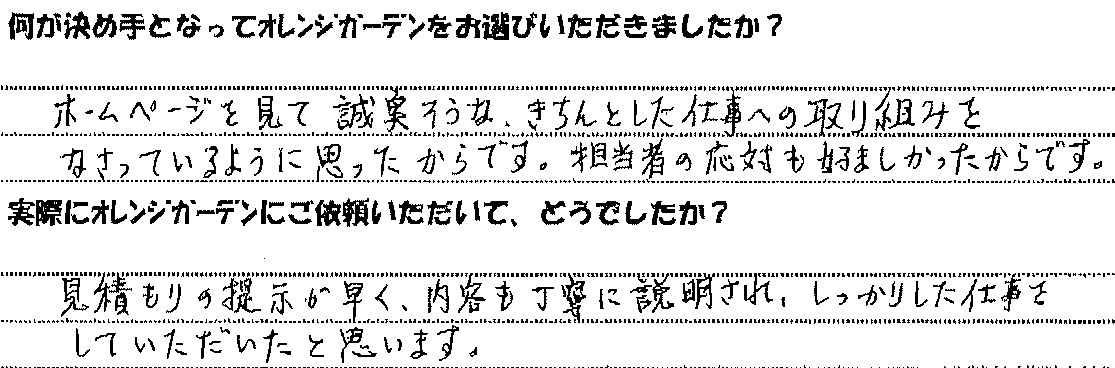 何が決め手となってオレンジガーデンをお選びいただきましたか？
ホームページを見て誠実そうな、きちんとした仕事への取り組みを
なさっているように思ったからです。担当者の応対も好ましかったからです。
実際にオレンジガーデンにご依頼いただいて、どうでしたか？
見積もりの提示が早く、内容も丁寧に説明され、しっかりした仕事を
していただいたと思います。